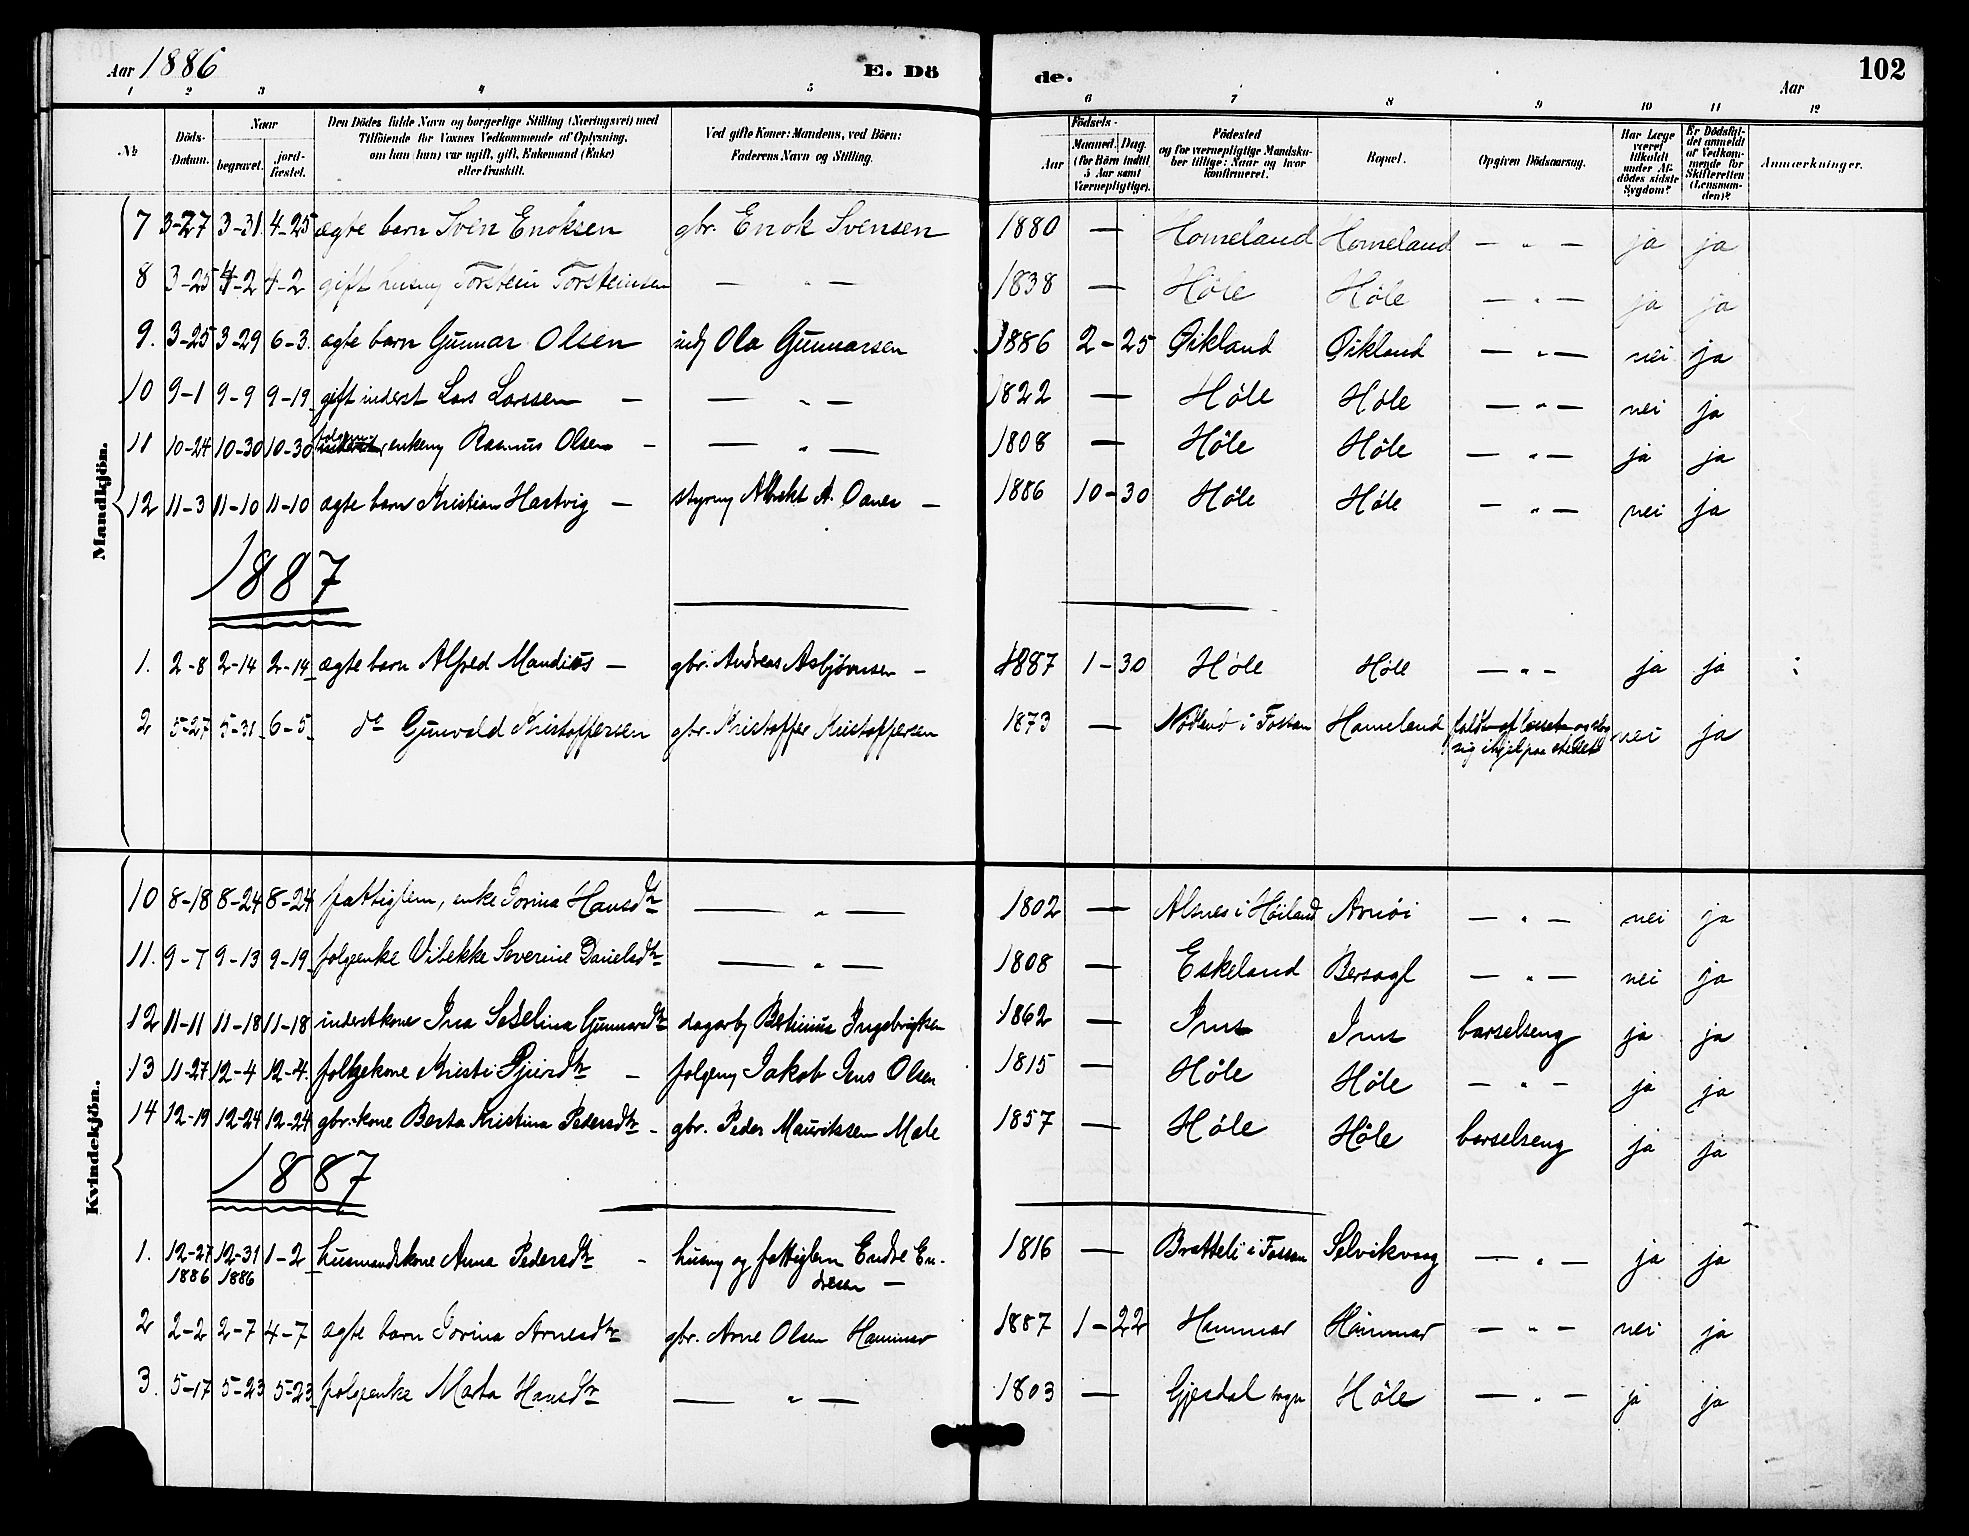 Aar 1886 E. Dö de. Aar 102
1 2 3 4 5 6 7 8 9 10 11 12
No Döds-Datum. Naar begravet. jord-fæstet. Den Dödes fulde Navn og borgerlige Stilling (Næringsvei) med Tilföiende for Voxnes Vedkommende af Oplysning, om han (hun) var ugift, gift, Enkemand (Enke) eller fraskilt. Ved gifte Koner: Mandens, ved Börn: Faderens Navn og Stilling. Födsels- Aar Maaned. Dag. (for Börn indtil 5 Aar samt Værnepligtige). Födested og for værnepligtige Mandskaber tillige: Naar og hvor konfirmeret. Bopæl. Opgiven Dödsaarsag. Har Læge været tilkaldt under Afdödes sidste Sygdom? Er Dödsfaldet anmeldt af Vedkommende for Skifteretten (Lensmanden)? Anmærkninger.
Mandkjön.
7 3-27 3-31 4-25 ægte barn Sven Enoksen gbr. Enok Svensen 1880 — Homeland Homeland — " — ja ja
8 3-25 4-2 4-2 gift husmg Torstein Torsteinsen — " — 1838 — Höle Höle — " — ja ja
9. 3-25 3-29 6-3. ægte barn Gunnar Olsen indg Ola Gunnarsen 1886 2-25 Øikland Øikland — " — nei ja
10 9-1 9-9 9-19 gift inderst Lars Larssen — — " — 1822 — Höle Höle — " — nei ja
11 10-24 10-30 10-30 enkemg Rasmus Olsen — — " — 1808 — Höle Höle — " — ja ja
12 11-3 11-10 11-10 ægte barn Kristian Hartvig — styrmg Albrekt A. — 1886 10-30 Höle Höle — " — nei ja
1887
1. 2-8 2-14 2-14 ægte barn Alfred Mandius — gbr. Andreas Asbjörnsen — 1887 1-30 Höle Höle — " — ja ja
2 5-27 5-31 6-5 do Gunvald Kristoffersen gbr. Kristoffer Kristoffersen 1873 — i Fossan Homeland faldt af lasset og slog nei ja
sig ihjel paa stedet
Kvindekjön.
10 8-18 8-24 8-24 fattiglem, enke Jorina Hansdtr — " — 1802 — Alsnes i Höiland Amöi — " — nei ja
11. 9-7 9-13 9-19 folgeenke Vibekke Severine Danielsdtr — " — 1808 — Eskeland Bersagl — " — nei ja
12 11-11 11-18 11-18 inderstkone Ina Selelina Gunnarsdtr dagarb Bertinius Ingebrigtsen 1862 — Ims Ims barselseng ja ja
13 11-27 12-4 12-4 folgekone Kristi — folgemg Jakob Jens Olsen 1815 — Höle Höle — " — ja ja
14 12-19 12-24 12-24 gbr.kone Berta Kristina Pedersdtr — gbr. Peder Mauritssen Mæle 1857 — Höle Höle barselseng ja ja
1887
1. 12-27 12-31 1-2 husmandskone Anna Pedersdtr — husmg og fattiglem Endre En- 1816 — Bratteli i Fossan Selvikvaag — " — ja ja
1886 1886 dresen —
2 2-2 2-7 4-7 ægte barn Jorina Arnesdtr gbr. Arne Olsen Hammar 1887 1-22 Hammar Hammar — " — nei ja
3. 5-17 5-23 5-23 folgeenke Marta Hansdtr — " — 1803 — Gjesdal sogn Höle — " — ja ja